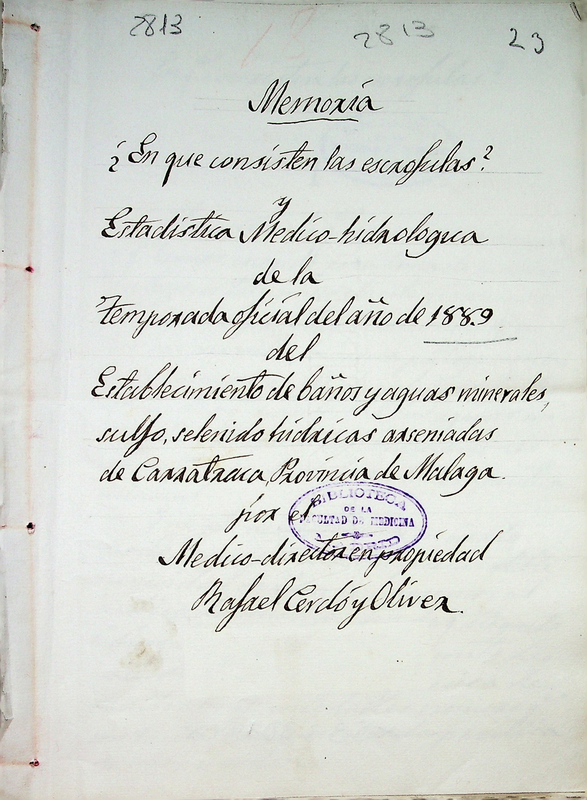 2813 2813 23
Memoria
¿En que consisten las escrofulas?
y
Estadistica Medico-hidrologica
de la
Temporada oficial del año de 1889
del
Establecimiento de baños y aguas minerales,
sulfo, selenido hidricas arseniadas
de Carratraca, Provincia de Malaga.
por el
BIBLIOTECA
DE LA
FACULTAD DE MEDICINA
Medico-director en propiedad
Rafael Cerdó y Oliver.